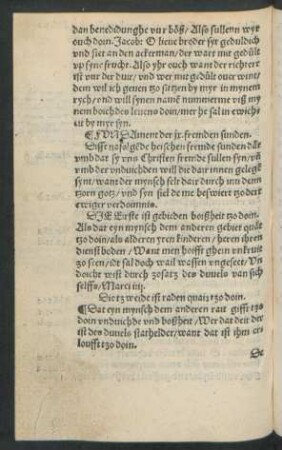 dan benedidunghe vur böß / Also sullenn wyr
ouch doin. Jacob: O lieue broder ser geduldich
vnd siet an den ackerman / der wart mit gedült
vp syne frucht. Also yhr ouch want der richtere
ist vur der duur / vnd wer mit gedült ouer wint /
dem wil ich geuen tzo sitzen by myr in mynem
rych / vnd will synen namē nummerme viß my
nem boich des leuens doin / mer he sal in ewich⸗
eit by myr syn.
¶ FVNDAment der ix. fremden sunden.
Disse nafolgēde heischen fremde sunden dar
vmb dat sy vns Christen fremde sullen syn / vñ
vmb der vnduichden will die dair innen gelegē
synt / want der mensch felt dair durch inn denn
tzorn gotz / vnd syn siel de me beswiert tzo der
ewiger verdoimnis.
DIE Eirste ist gebieden boißheit tzo doin.
Als dat eyn mynsch dem anderen gebiet quait
tzo doin / als alderen yren kinderen / heren ihren
dienst boden / Want men boifft ghein vnkruit
zo seen / idt sal doch wail wassen vngeseit / Vn
doicht west durch zosatz des duuels van sich
selffs / Marci iiij.
Die tzweide ist raden quaitz tzo doin.
¶ Dat eyn mynsch dem anderen rait gifft tzo
doin vnduichde vnd boßheit / Wer dat deit der
ist des duuels stathelder / want dat ist ihm er⸗
loufft tzo doin.
De